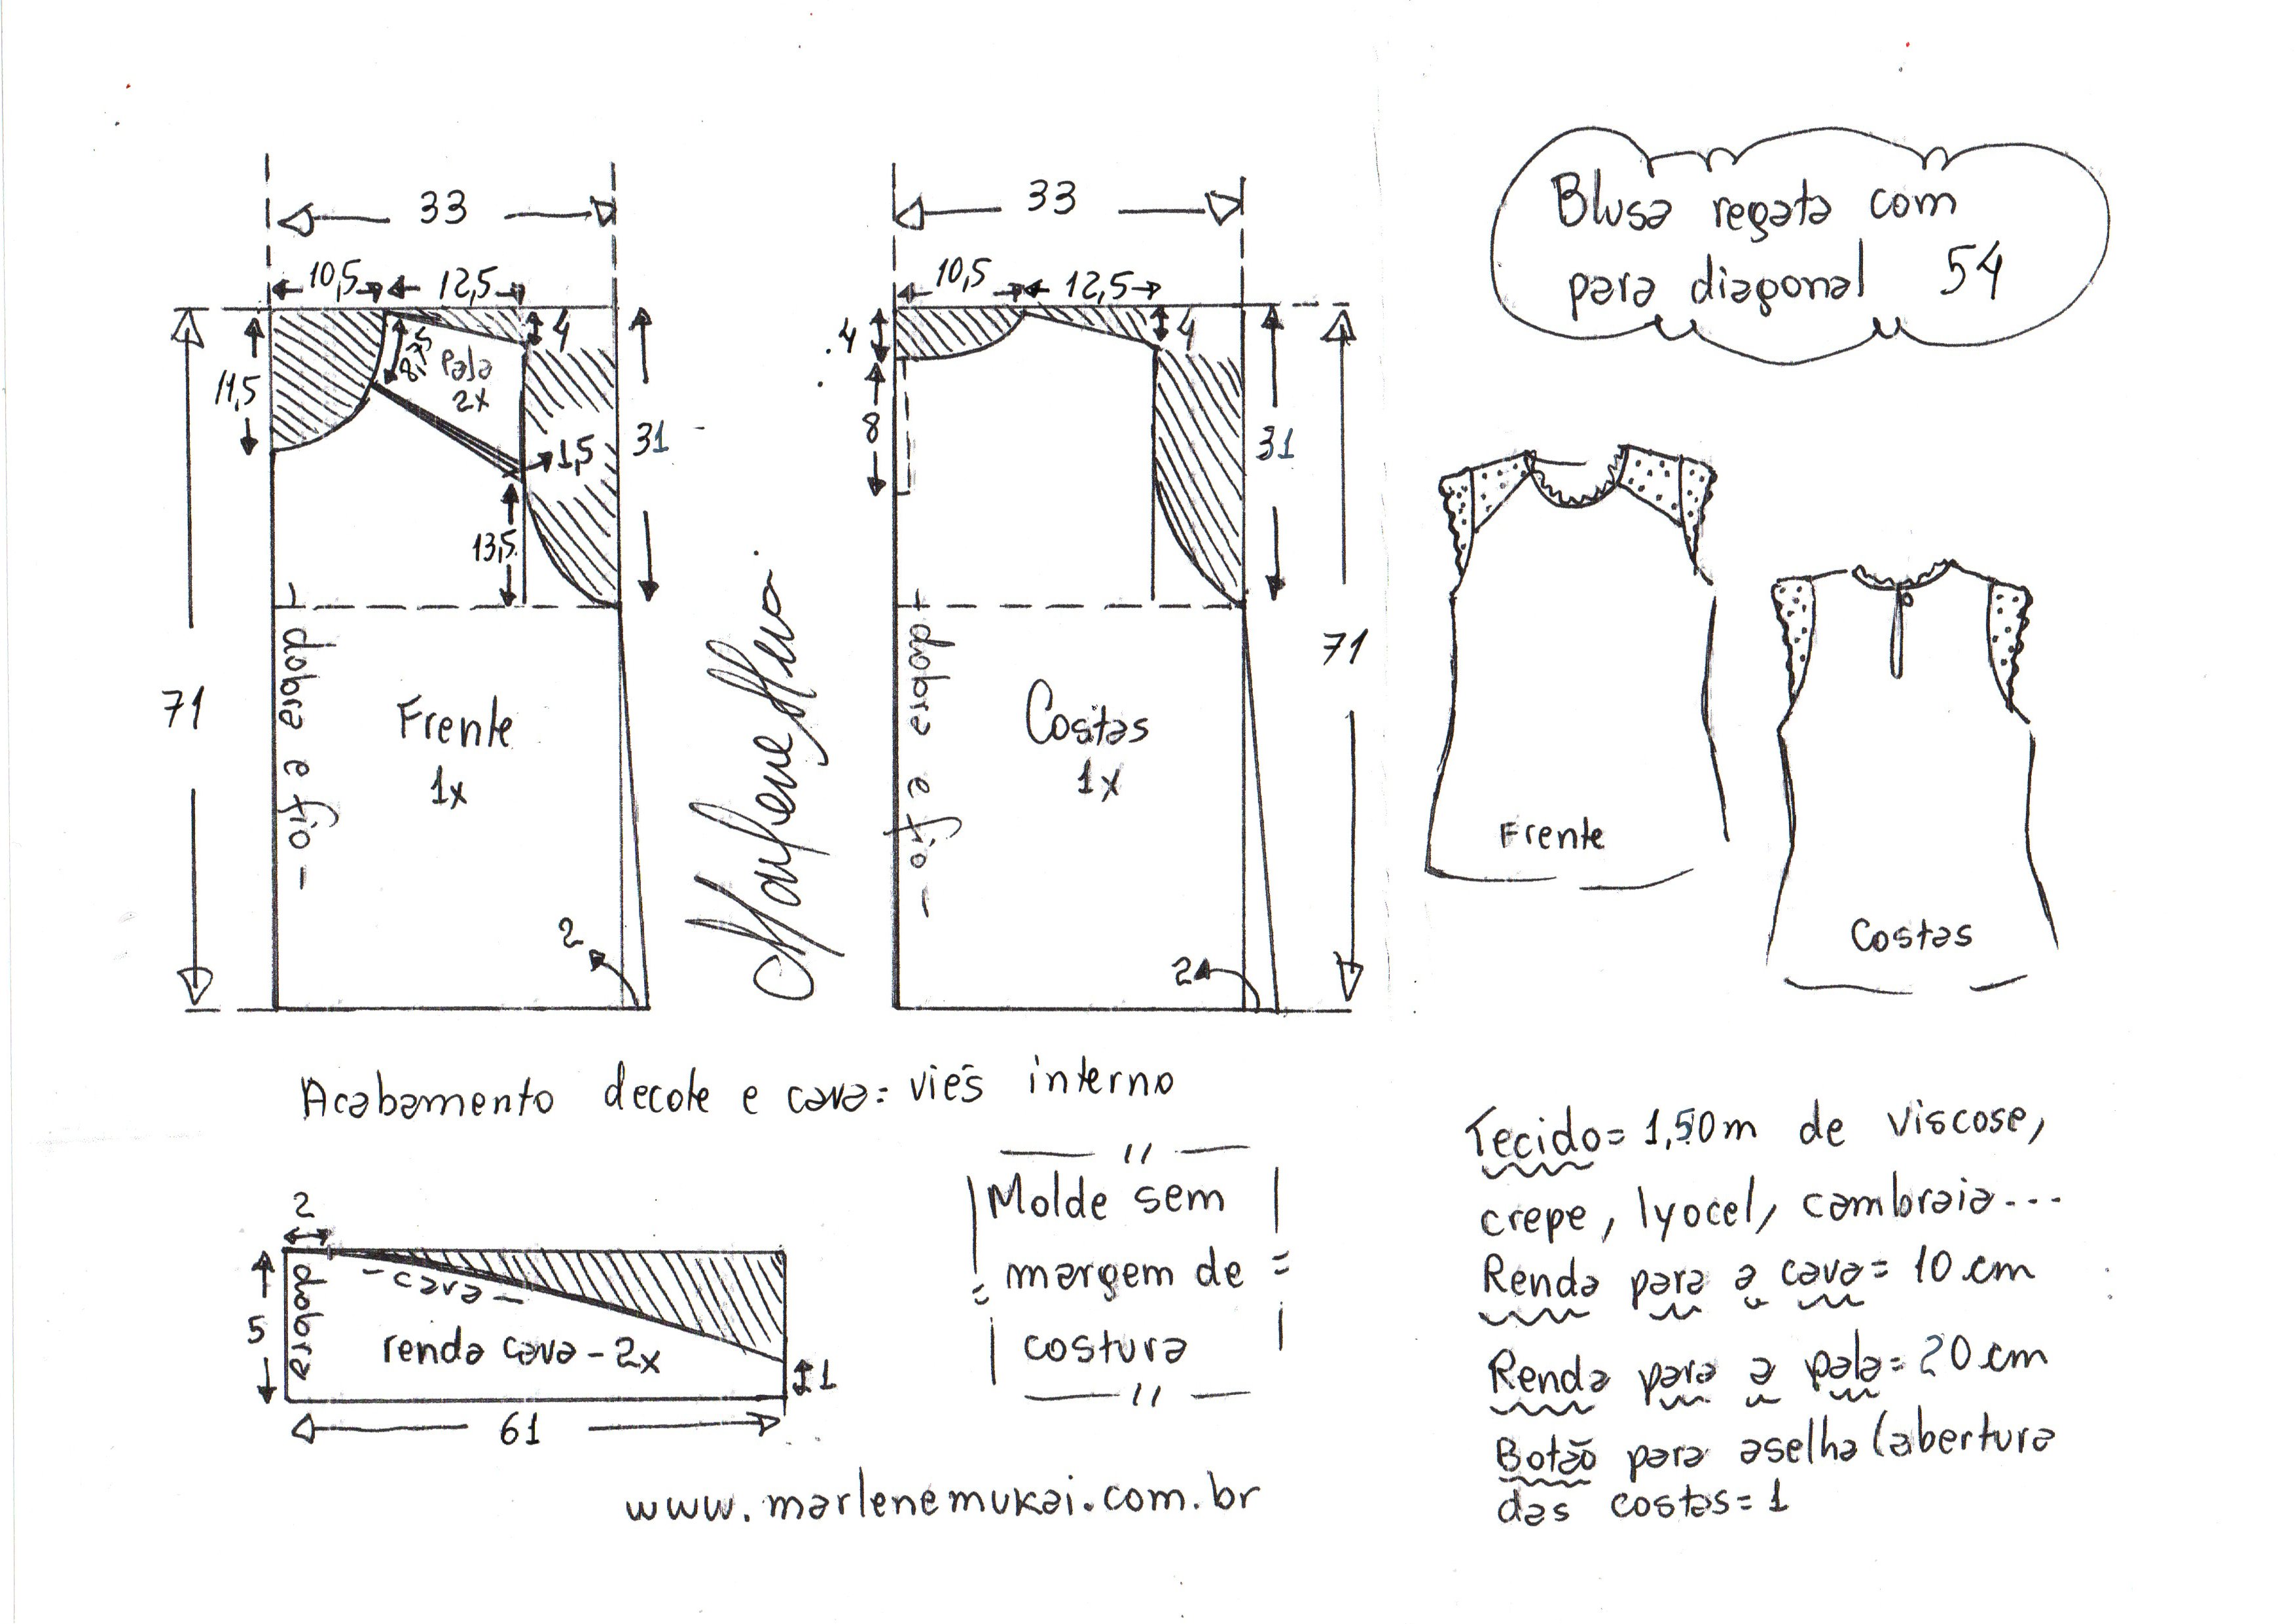 Blusa regata com
para diagonal 54
33
10,5 12,5
4
11,5
8,5
Pala
2x
1,5
31
13,5
71
dobra e fio
Frente
1x
2
33
10,5 12,5
4
4
8
31
71
dobra e fio
Costas
1x
2
Frente
Costas
Acabamento decote e cava= viés interno
2
5
dobra
cava
renda cava - 2x
1
61
Molde sem
margem de
costura
Tecido= 1,50m de viscose,
crepe, lyocel, cambraia...
Renda para a cava= 10 cm
Renda para a pala= 20 cm
Botão para aselha (abertura
das costas= 1
www.marlenemukai.com.br